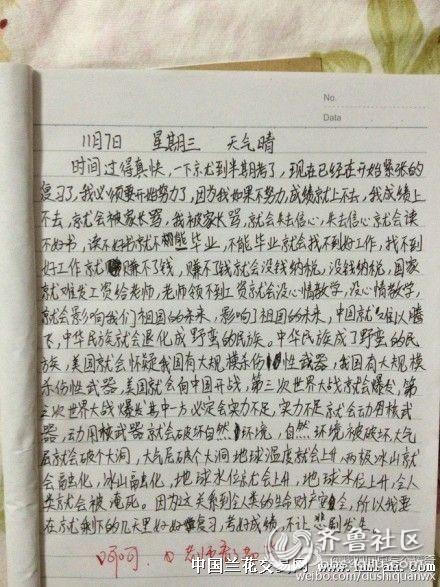 No.
Data
11月7日 星期三 天气晴
时间过得真快,一下就到半期考了,现在已经进开始紧张的
复习了,我必须要开始努力了,因为我如果不努力,成绩就上不去,我成绩上
不去,就会被家长骂,我被家长骂,就会失去信心,失去信心就会读
不好书,读不好书就不能毕业,不能毕业就会找不到好工作,找不到
好工作就赚不了钱,赚不了钱就会没钱纳税,没钱纳税,国家
就难发工资给老师,老师领不到工资就会没心情教学,没心情教学,
就会影响我们祖国的未来,影响了祖国的未来,中国就难以腾
飞,中华民族就会退化成野蛮的民族。中华民族成了野蛮的民
族,美国就会怀疑我国有大规模杀伤性武器,我国有大规模
杀伤性武器,美国就会向中国开战,第三次世界大战就会爆发,第
三次世界大战爆发其中一方必定会实力不足,实力不足就会动用核武
器,动用核武器就会破坏自然环境,自然环境被破坏,大气
层就会破个大洞,大气层破个大洞地球温度就会上升,两极冰山就
会融化,冰山融化,地球水位就会上升,地球水位上升,全人
类就会被淹死。因为这关系到全人类的生命财产安全,所以我要
在就剩下的几天里好好复习,考好成绩,不让悲剧发生。
呵呵
齐鲁社区
bbs.qlwb.com.cn
中国兰花交易网 www.hmlan.com